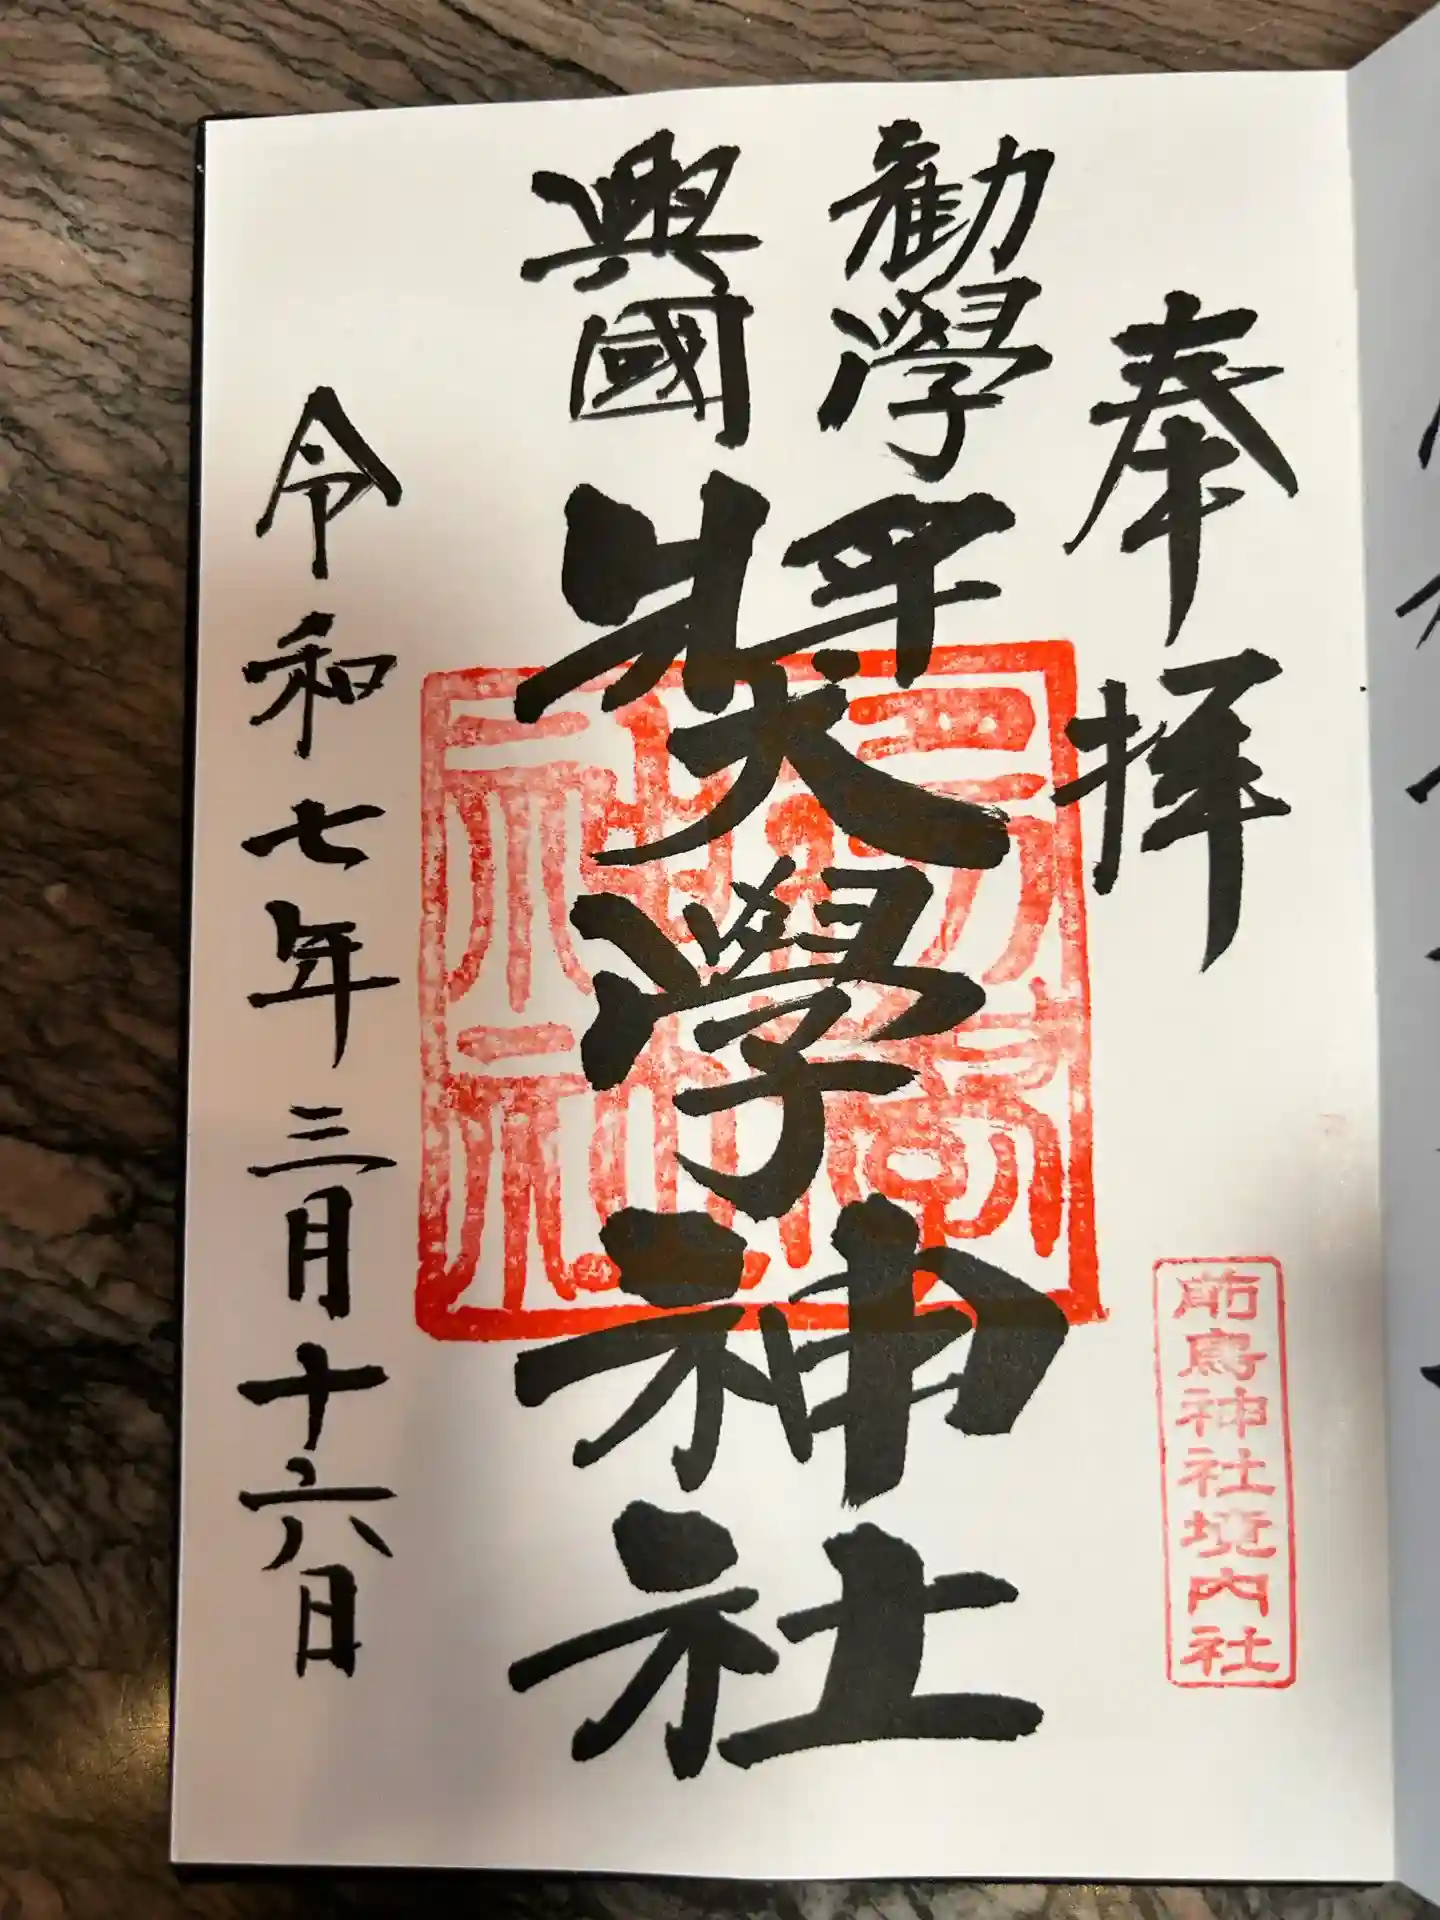 奉拝
勧學
興國
獎學神社
令和七年三月十六日
前鳥神社境内社